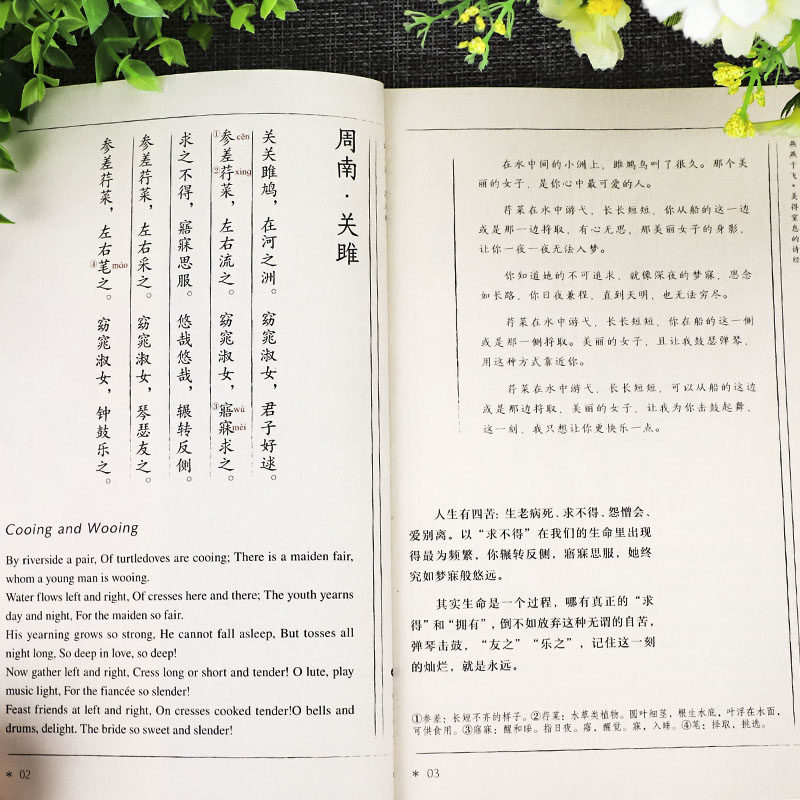 周南·关雎
关关雎鸠，在河之洲。 窈窕淑女，君子好逑。
①参cēn差②荇xìng菜，左右流之。 窈窕淑女，③寤wù寐mèi求之。
求之不得，寤寐思服。 悠哉悠哉，辗转反侧。
参差荇菜，左右采之。 窈窕淑女，琴瑟友之。
参差荇菜，左右④笔mào之。 窈窕淑女，钟鼓乐之。
Cooing and Wooing
By riverside a pair, Of turtledoves are cooing; There is a maiden fair,
whom a young man is wooing.
Water flows left and right, Of cresses here and there; The youth yearns
day and night, For the maiden so fair.
His yearning grows so strong, He cannot fall asleep, But tosses all
night long, So deep in love, so deep!
Now gather left and right, Cress long or short and tender! O lute, play
music light, For the fiancée so slender!
Feast friends at left and right, On cresses cooked tender!O bells and
drums, delight. The bride so sweet and slender!
* 02
燕燕于飞*美得窒息的诗经
在水中间的小洲上，雎鸠鸟叫了很久。那个美
丽的女子，是你心中最可爱的人。
荇菜在水中游弋，长长短短，你从船的这一边
或是那一边捋取，有心无思，那美丽女子的身影，
让你一夜一夜无法入梦。
你知道她的不可追求，就像深夜的梦寐，思念
如长路，你日夜兼程，直到天明，也无法穷尽。
荇菜在水中游弋，长长短短，你在船的这一侧
或是那一侧捋取。美丽的女子，且让我鼓瑟弹琴，
用这种方式靠近你。
荇菜在水中游弋，长长短短，可以从船的这边
或是那边捋取，美丽的女子，让我为你击鼓起舞，
这一刻，我只想让你更快乐一点。
人生有四苦：生老病死、求不得、怨憎会、
爱别离。以“求不得”在我们的生命里出现
得最为频繁，你辗转反侧，寤寐思服，她终
究如梦寐般悠远。
其实生命是一个过程，哪有真正的“求
得”和“拥有”，倒不如放弃这种无谓的自苦，
弹琴击鼓，“友之”“乐之”，记住这一刻
的灿烂，就是永远。
①参差：长短不齐的样子。②荇菜：水草类植物。圆叶细茎，根生水底，叶浮在水面，
可供食用。③寤寐：醒和睡。指日夜。寤，醒觉。寐，入睡。④笔：择取，挑选。
* 03